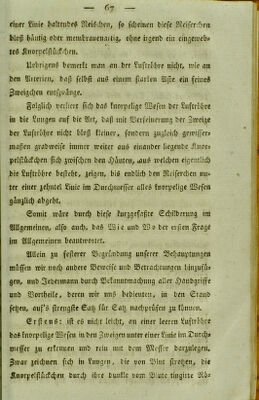 — 67 —
einer Linie haltendes Reischen, so scheinen diese Reiserchen
bloß häutig oder membranenartig, ohne irgend ein eingeweb-
tes Knorpelstückchen.
Uebrigens bemerkt man an der Luftröhre nicht, wie an
den Arterien, daß selbst aus einem starken Aste ein feines
Zweigchen entspränge.
Folglich verliert sich das knorpelige Wesen der Luftröhre
in die Lungen auf die Art, daß mit Verfeinerung der Zweige
der Luftröhre nicht bloß kleiner, sondern zugleich gewisser-
maßen gradweise immer weiter aus einander liegende Knor-
pelstückchen sich zwischen den Häuten, aus welchen eigentlich
die Luftröhre besteht, zeigen, bis endlich den Reiserchen un-
ter einer zehntel Linie im Durchmesser alles knorpelige Wesen
gänzlich abgeht.
Somit wäre durch diese kurzgefaßte Schilderung im
Allgemeinen, also auch, das Wie und Wo der ersten Frage
im Allgemeinen beantwortet.
Allein zu festerer Begründung unserer Behauptungen
müssen wir noch andere Beweise und Betrachtungen hinzufü-
gen, und Jedermann durch Bekanntmachung aller Handgriffe
und Vortheile, deren wir uns bedienten, in den Stand
setzen, auf's strengste Satz für Satz nachprüfen zu können.
Erstens: ist es nicht leicht, an einer leeren Luftröhre
das knorpelige Wesen in den Zweigen unter einer Linie im Durch-
messer zu erkennen und rein mit dem Messer darzulegen.
Zwar zeichnen sich in Lungen, die von Blut strotzen, die
Knorpelstückchen durch ihre dunkle vom Blute tingirte Rö-